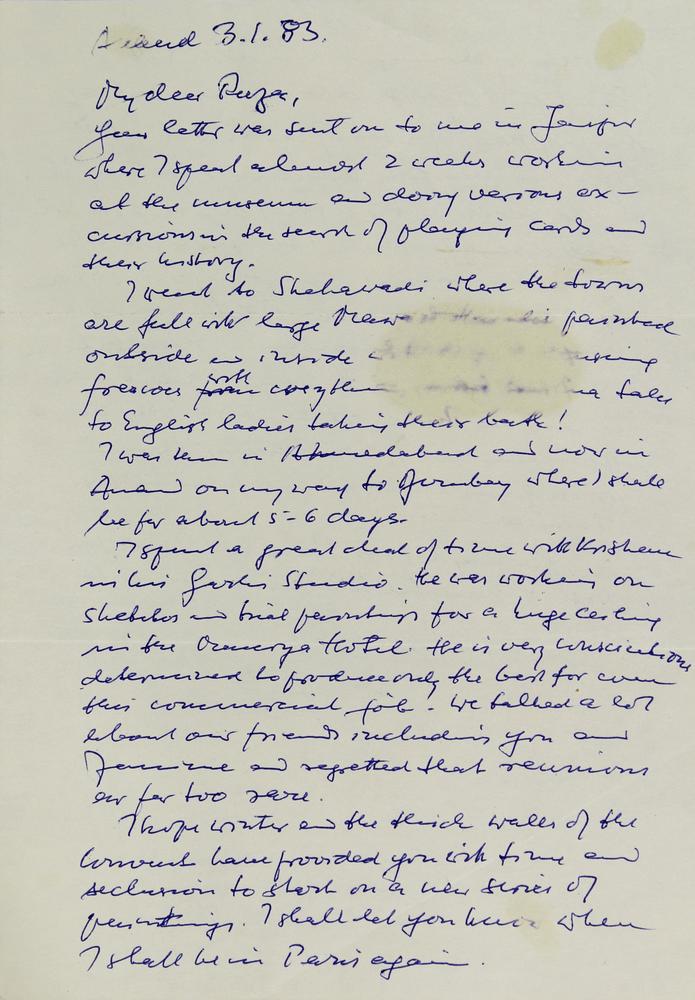 Anand 3.1.83.
My dear Raza,
Your letter was sent on to me in Jaipur
where I spent almost 2 weeks working
at the museum and doing various ex-
cursions in the search of playing cards and
their history.
I went to Shekawadi where the towns
are full with large painted
outside and inside
frescoes from with everything
to English ladies taking their bath!
I was then in Ahmedabad and now in
Anand on my way to Bombay where I shall
be for about 5-6 days.
I spent a great deal of time with Krishen
in his Garhi Studio. He was working on
sketches and trial paintings for a huge ceiling
in the Maurya Hotel. He is very conscientious
determined to produce only the best for even
this commercial job. We talked a lot
about our friends including you and
Janine and regretted that reunions
are far too rare.
I hope winter and the thick walls of the
Convent have provided you with time and
seclusion to start on a new series of
paintings. I shall let you know when
I shall be in Paris again.